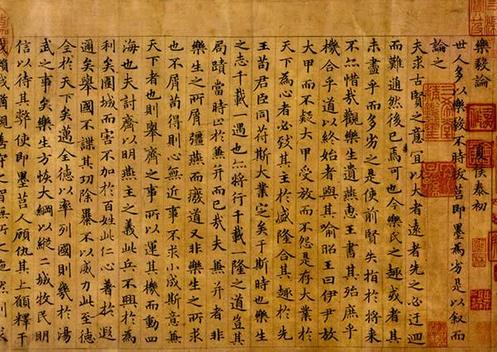 樂毅論 夏侯泰初
世人多以樂毅不時拔莒即墨為劣是以敘而
論之
夫求古賢之意宜以大者遠者先之必迂迴
而難通然後已焉可也今樂氏之趣或者其
未盡乎而多劣之是使前賢失指於將來
不亦惜哉觀樂生遺燕惠王書其殆庶乎
機合乎道以終始者與其喻昭王曰伊尹放
大甲而不疑大甲受放而不怨是存大業於
天下為心者必致其主於盛隆合其趣於先
王苟君臣同符斯大業定矣于斯時也樂生
之志千載一遇也亦將行千載一隆之道豈其
局蹟當時止於兼并而已哉夫兼并者非
樂生之所屑彊燕而廢道又非樂生之所求
也不屑苟得則心無近事不求小成斯意兼
天下者也則舉齊之事所以運其機而動四
海也夫討齊以明燕主之義此兵不興於為
利矣圍城而害不加於百姓此仁心著於遐
邇矣舉國不謀其功除暴不以威力此至德
全於天下矣邁全德以率列國則幾於湯
武之事矣樂生方恢大綱以縱二城牧民明
信以待其弊使即墨莒人顧仇其上願釋干